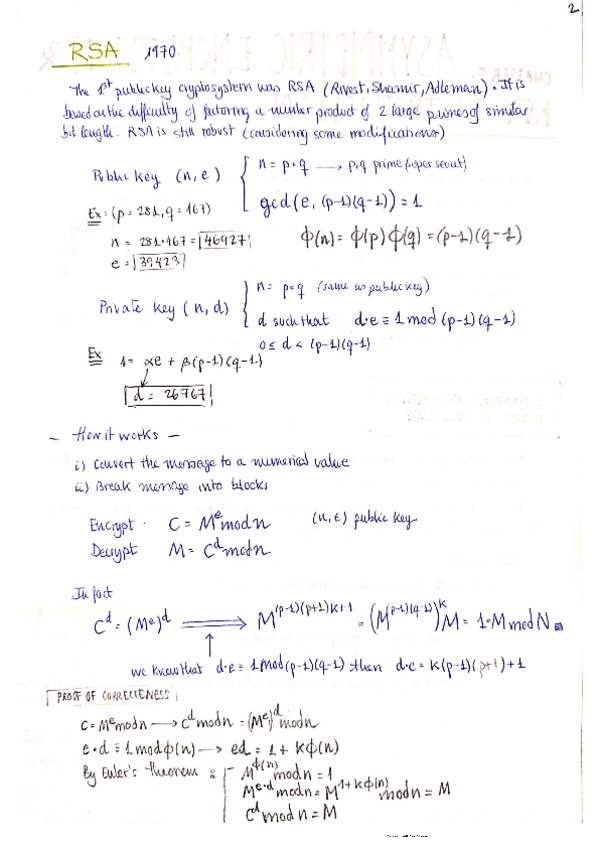 2
RSA 1970
The 1st public key cryptosystem was RSA (Rivest, Shamir, Adleman). It is
based on the difficulty of factoring a number product of 2 large primes of similar
bit length. RSA is still robust (considering some modifications)
Public key (n, e) { n = p·q → p,q prime (super secret)
gcd(e, (p-1)(q-1)) = 1
Ex: (p = 281, q = 167)
n = 281·167 = 46927
ϕ(n) = ϕ(p) ϕ(q) = (p-1)(q-1)
e = 39423
Private key (n, d) { n = p·q (same as public key)
d such that d·e ≡ 1 mod (p-1)(q-1)
0 ≤ d < (p-1)(q-1)
Ex 1 = αe + β(p-1)(q-1)
d = 26767
- How it works -
i) Convert the message to a numerical value
ii) Break message into blocks
Encrypt C = M^e mod n (n, e) public key
Decrypt M = C^d mod n
In fact
C^d = (M^e)^d ⟹ M^((p-1)(p+1)k+1) = (M^((p-1)(q-1)))^k M = 1·M mod N
we know that d·e ≡ 1 mod (p-1)(q-1) then d·e = k(p-1)(p+1)+1
PROOF OF CORRECTENESS
C = M^e mod n → C^d mod n = (M^e)^d mod n
e·d ≡ 1 mod ϕ(n) → ed = 1 + kϕ(n)
By Euler's theorem: M^ϕ(n) mod n = 1
M^(e·d) mod n = M^(1+kϕ(n)) mod n = M
C^d mod n = M